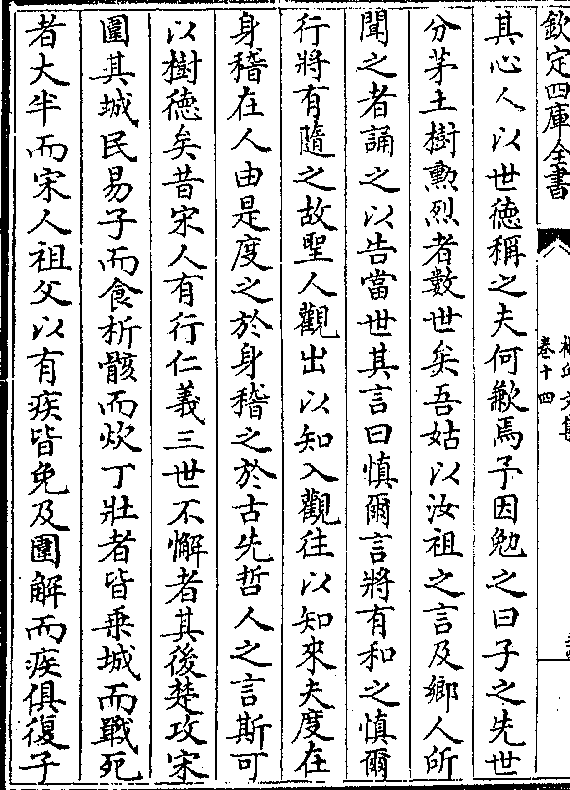 欽定四庫全書
卷十四
其心人以世徳稱之夫何歉焉予因勉之曰子之先世
分茅土樹勲烈者數世矣吾姑以汝祖之言及鄉人所
聞之者誦之以告當世其言曰慎爾言將有和之慎爾
行將有隨之故聖人觀出以知入觀往以知來夫度在
身稽在人由是度之於身稽之於古先哲人之言斯可
以樹徳矣昔宋人有行仁義三世不懈者其後楚攻宋
圍其城民易子而食析骸而炊丁壯者皆乗城而戰死
者大半而宋人祖父以有疾皆免及圍解而疾俱復子